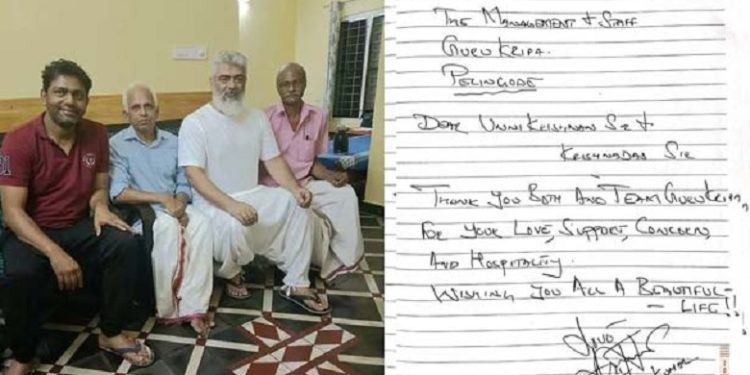 The Management & Staff
GuruKripa.
Peringode
Dear UnniKrishnan Sr &
Krishnadas Sir
Thank You Both And Team GuruKripa,
For Your Love, Support, Concern,
And Hospitality.
Wishing You All A Beautiful
Life!!